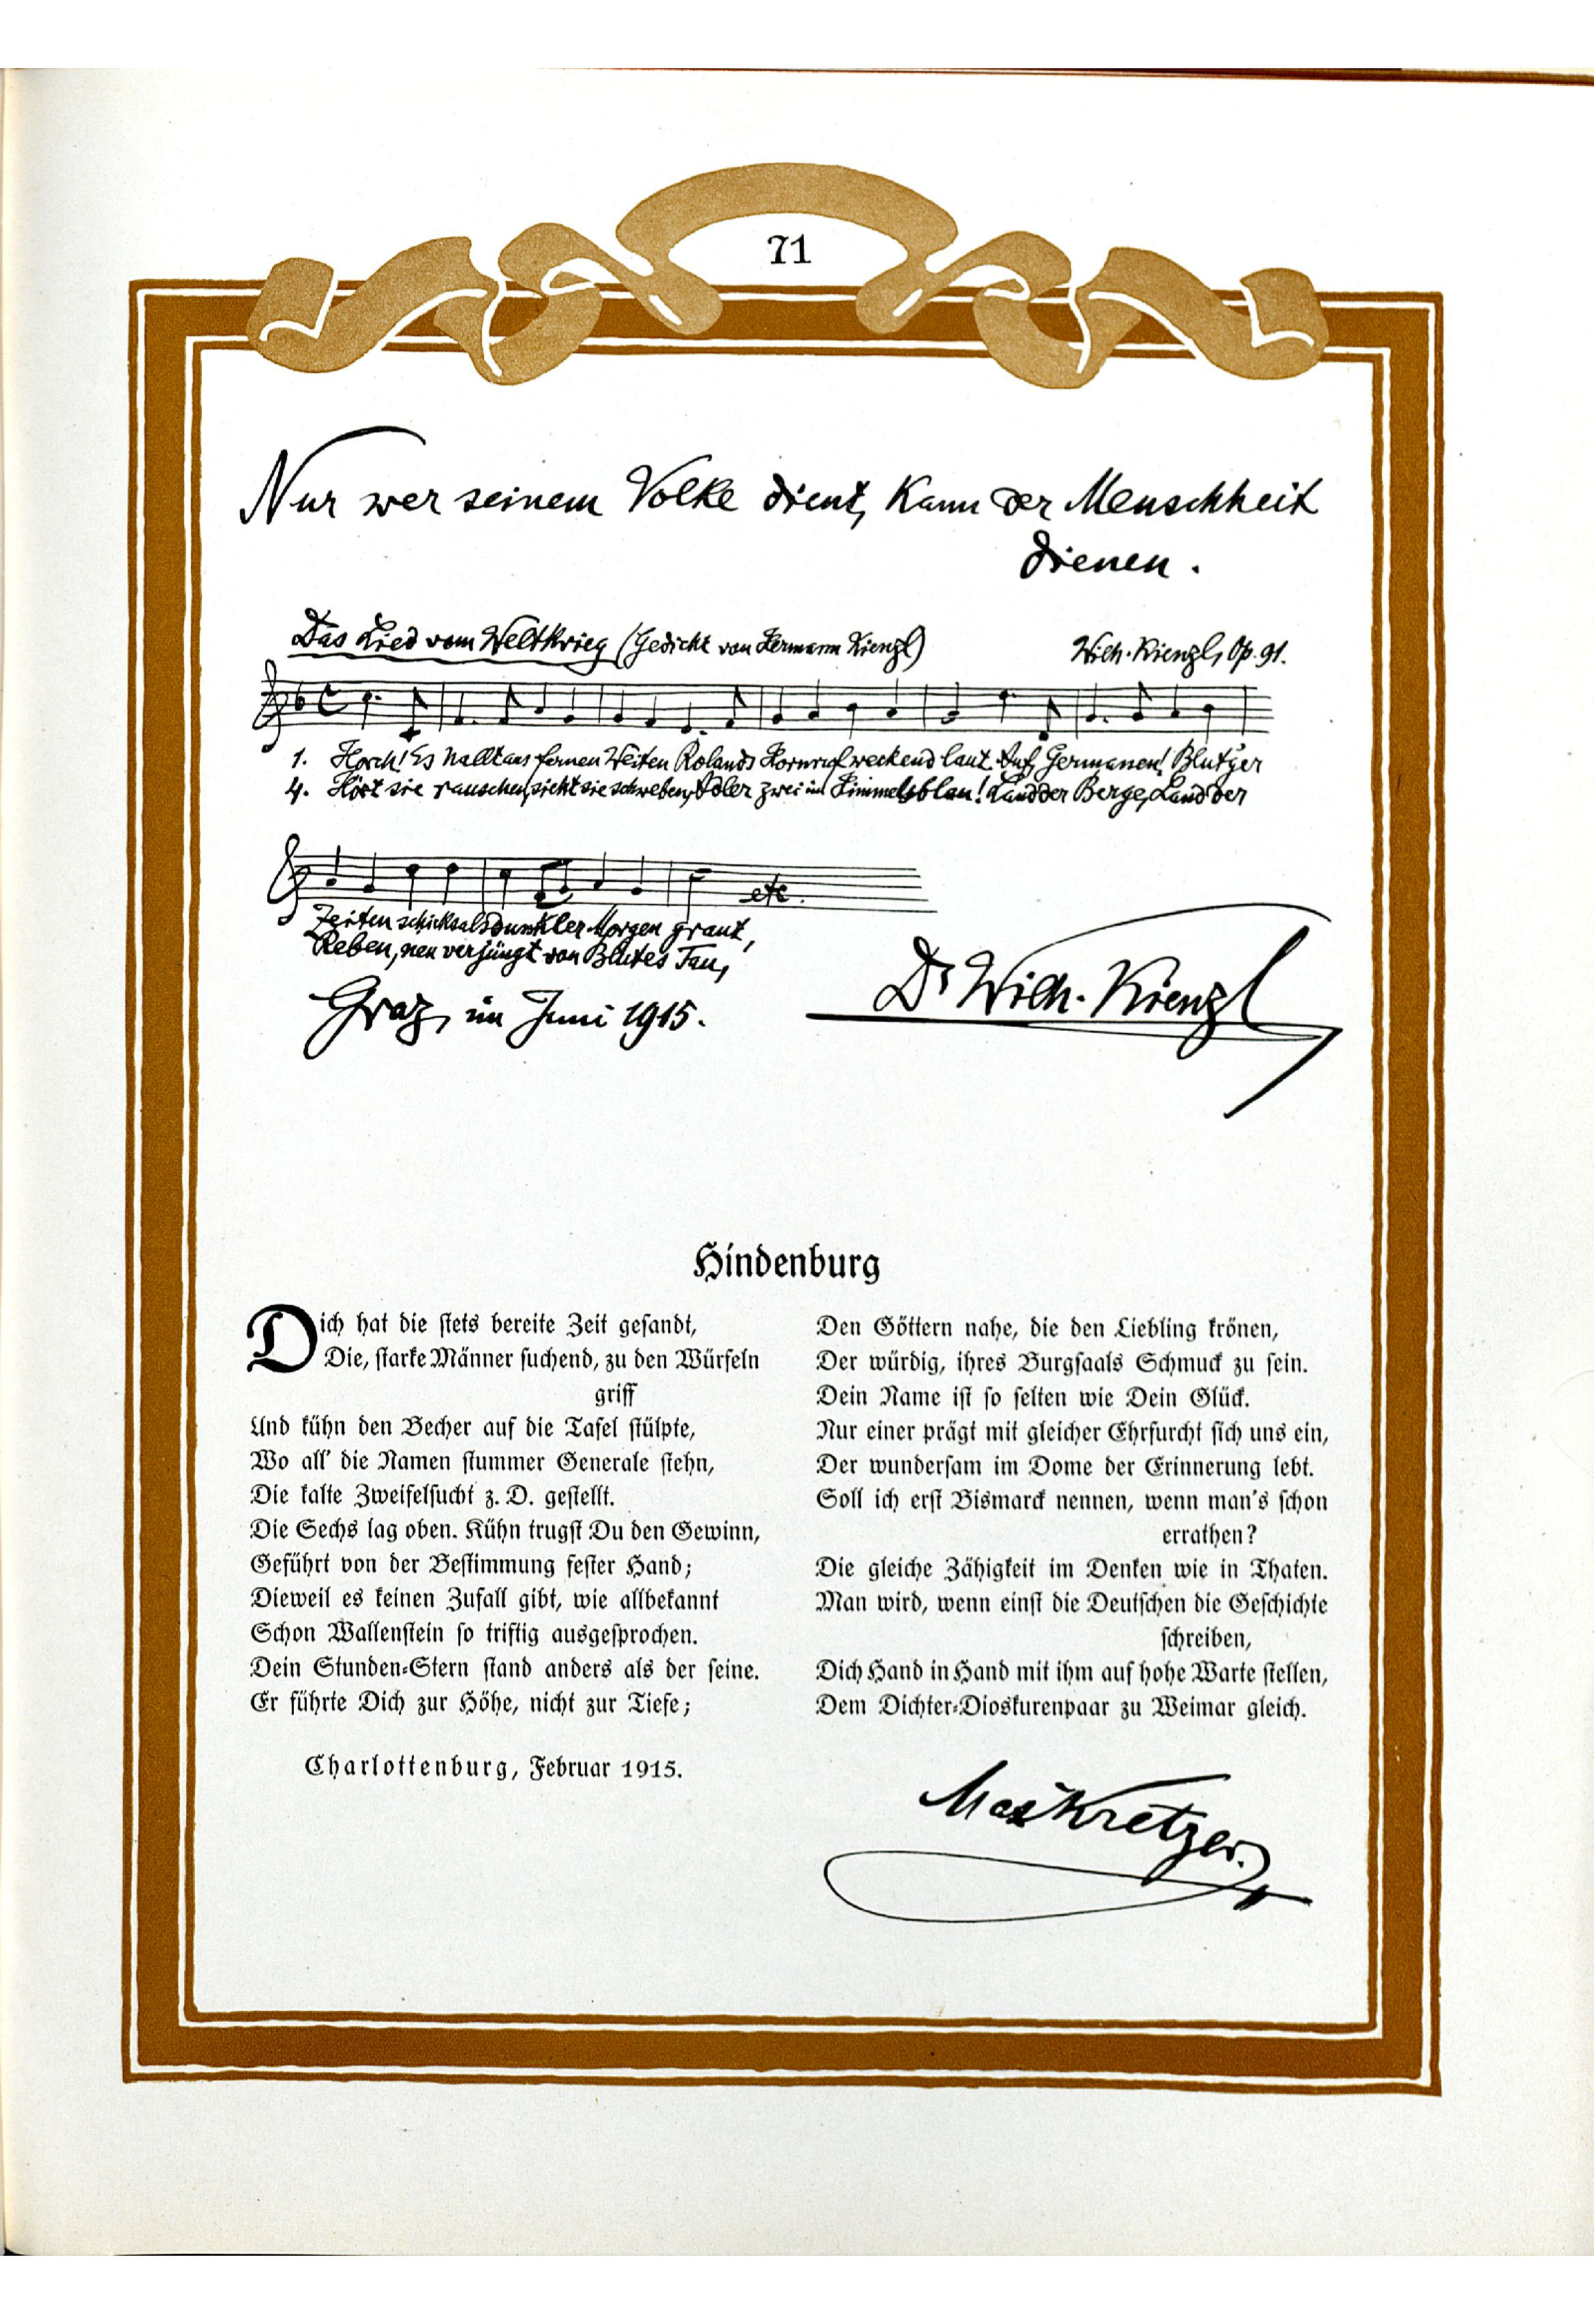 71
Nur wer seinem Volke dient, kann der Menschheit
dienen.
Das Lied vom Weltkrieg (Gedicht von Hermann Kienzl)
Wilh. Kienzl, Op. 91.
1. Horch! Es hallt aus fernen Weiten Rolands Hornruf weckend laut. Auf, Germanen! Blut'ger
4. Hört sie rauschen, sieht sie schweben, Adler zwei im Himmelsblau! Land der Berge, Land der
etc.
Zeiten schicksalsdunkler Morgen graut,
Reben, neu verjüngt von Blutes Tau,
Graz, im Juni 1915.
Dr Wilh. Kienzl
Hindenburg
Dich hat die stets bereite Zeit gesandt,
Die, starke Männer suchend, zu den Würfeln
griff
Und kühn den Becher auf die Tafel stülpte,
Wo all' die Namen stummer Generale stehn,
Die kalte Zweifelsucht z. D. gestellt.
Die Sechs lag oben. Kühn trugst Du den Gewinn,
Geführt von der Bestimmung fester Hand;
Dieweil es keinen Zufall gibt, wie allbekannt
Schon Wallenstein so triftig ausgesprochen.
Dein Stunden-Stern stand anders als der seine.
Er führte Dich zur Höhe, nicht zur Tiefe;
Den Göttern nahe, die den Liebling krönen,
Der würdig, ihres Burgsaals Schmuck zu sein.
Dein Name ist so selten wie Dein Glück.
Nur einer prägt mit gleicher Ehrfurcht sich uns ein,
Der wundersam im Dome der Erinnerung lebt.
Soll ich erst Bismarck nennen, wenn man's schon
errathen?
Die gleiche Zähigkeit im Denken wie in Thaten.
Man wird, wenn einst die Deutschen die Geschichte
schreiben,
Dich Hand in Hand mit ihm auf hohe Warte stellen,
Dem Dichter-Dioskurenpaar zu Weimar gleich.
Charlottenburg, Februar 1915.
Max Kretzer.